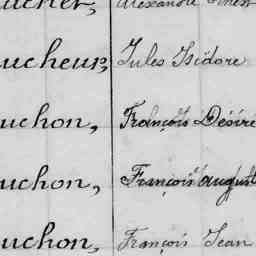 ucher, Alexandre Ernest
ucheur, Jules Isidore
uchon, François Désiré
uchon, François August
uchon, François Jean